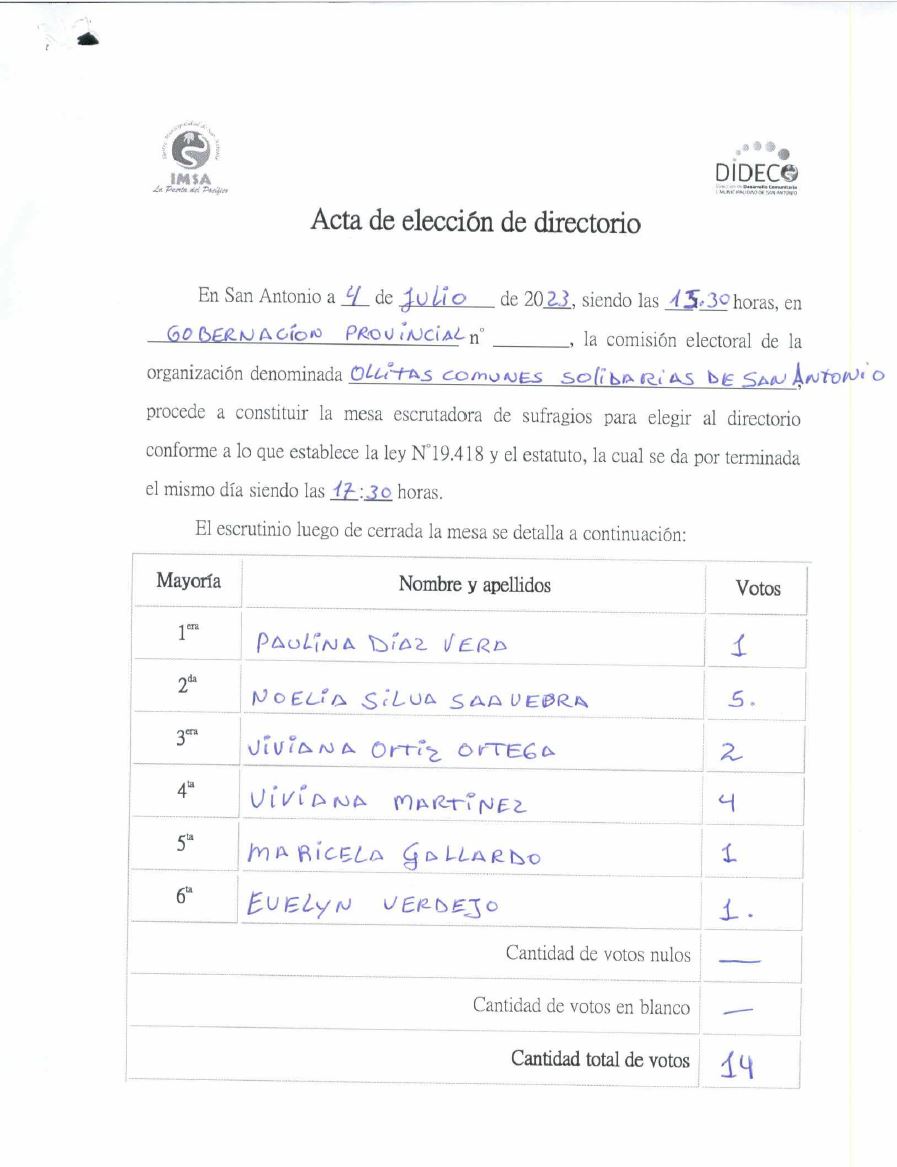 IMSA
La Puerta del Pacífico
DIDECO
Dirección de Desarrollo Comunitario
I. MUNICIPALIDAD DE SAN ANTONIO
Acta de elección de directorio
En San Antonio a 4 de Julio de 2023, siendo las 15:30 horas, en
GOBERNACION PROVINCIAL n° ________, la comisión electoral de la
organización denominada OLLITAS COMUNES SOLIDARIAS DE SAN ANTONIO,
procede a constituir la mesa escrutadora de sufragios para elegir al directorio
conforme a lo que establece la ley N°19.418 y el estatuto, la cual se da por terminada
el mismo día siendo las 17:30 horas.
El escrutinio luego de cerrada la mesa se detalla a continuación:
Mayoría Nombre y apellidos Votos
1era PAULINA DIAZ VERA 1
2da NOELIA SILVA SAAVEDRA 5.
3era VIVIANA ORTIZ ORTEGA 2
4ta VIVIANA MARTINEZ 4
5ta MARICELA GALLARDO 1
6ta EVELYN VERDEJO 1.
Cantidad de votos nulos —
Cantidad de votos en blanco —
Cantidad total de votos 14